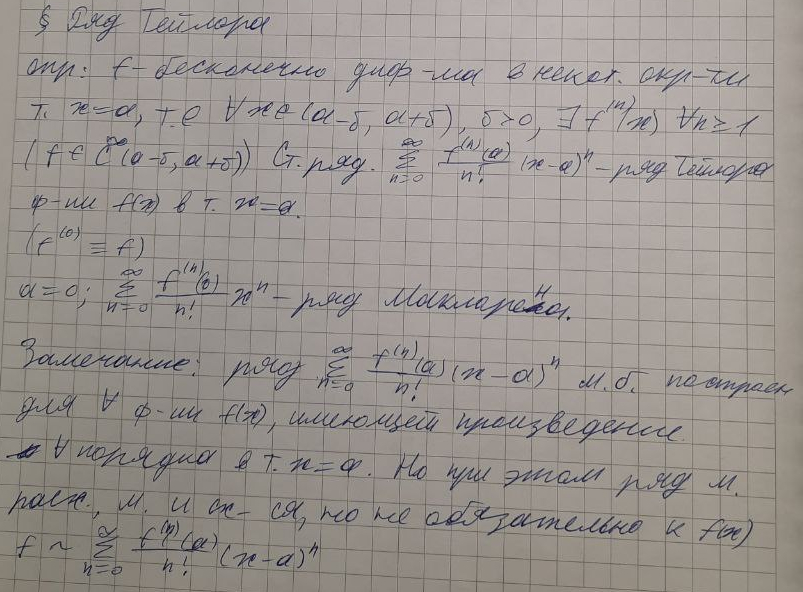 § Ряд Тейлора
опр: f - бесконечно диф-ма в некот. окр-ти
т. x=a, т.е ∀x∈(a-δ, a+δ), δ>0, ∃ f⁽ⁿ⁾(x) ∀n≥1
(f ∈ C^∞(a-δ, a+δ)) Ст. ряд. ∑_{n=0}^{∞} f⁽ⁿ⁾(a)/n! (x-a)ⁿ - ряд Тейлора
ф-ии f(x) в т. x=a.
(f⁽⁰⁾ ≡ f)
a=0; ∑_{n=0}^{∞} f⁽ⁿ⁾(0)/n! xⁿ - ряд Маклорена.
Замечание: ряд ∑_{n=0}^{∞} f⁽ⁿ⁾(a)/n! (x-a)ⁿ м.б. построен
для ∀ ф-ии f(x), имеющей произведение
∀ порядка в т. x=a. Но при этом ряд м.
расх., м. и сх-ся, но не обязательно к f(x)
f ~ ∑_{n=0}^{∞} f⁽ⁿ⁾(a)/n! (x-a)ⁿ